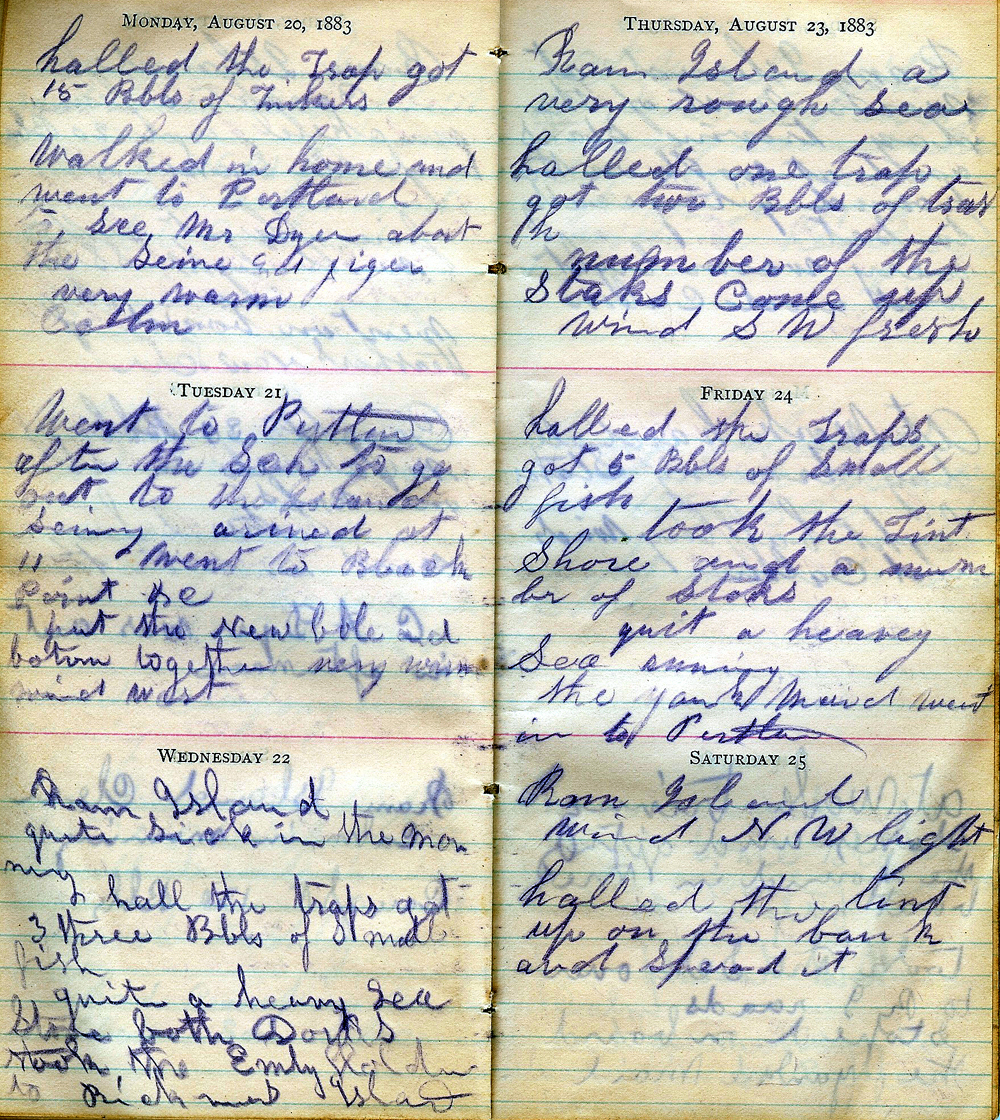 Monday, August 20, 1883
halled the Trap got
15 Bbls of Tinkers
Walked in home and
went to Portland
to See Mr Dyer about
the Seine
very warm
Calm
Tuesday 21
Went to Portlan
after the Seh to go
out to the Island
Seiny arived at
11 went to Black
Point
I put the New
botom together very warm
wind west
Wednesday 22
Ram Island
quite Sick in the Mor
ning
I hall the traps got
3 three Bbls of Small
fish
quit a heavy Sea
Stove both Dorys
took the Emly
to Richmond Island
Thursday, August 23, 1883
Ram Island a
very rough Sea
halled one trap
got two Bbls of tras
h
number of the
Staks Come up
Wind S W fresh
Friday 24
halled the Traps
got 5 Bbls of Small
fish
took the Tint
Shore and a num
br of Staks
quit a heavey
Sea runing
the Yank went
in to Portlan
Saturday 25
Ram Island
Wind N W light
halled the tint
up on the bank
and Spread it